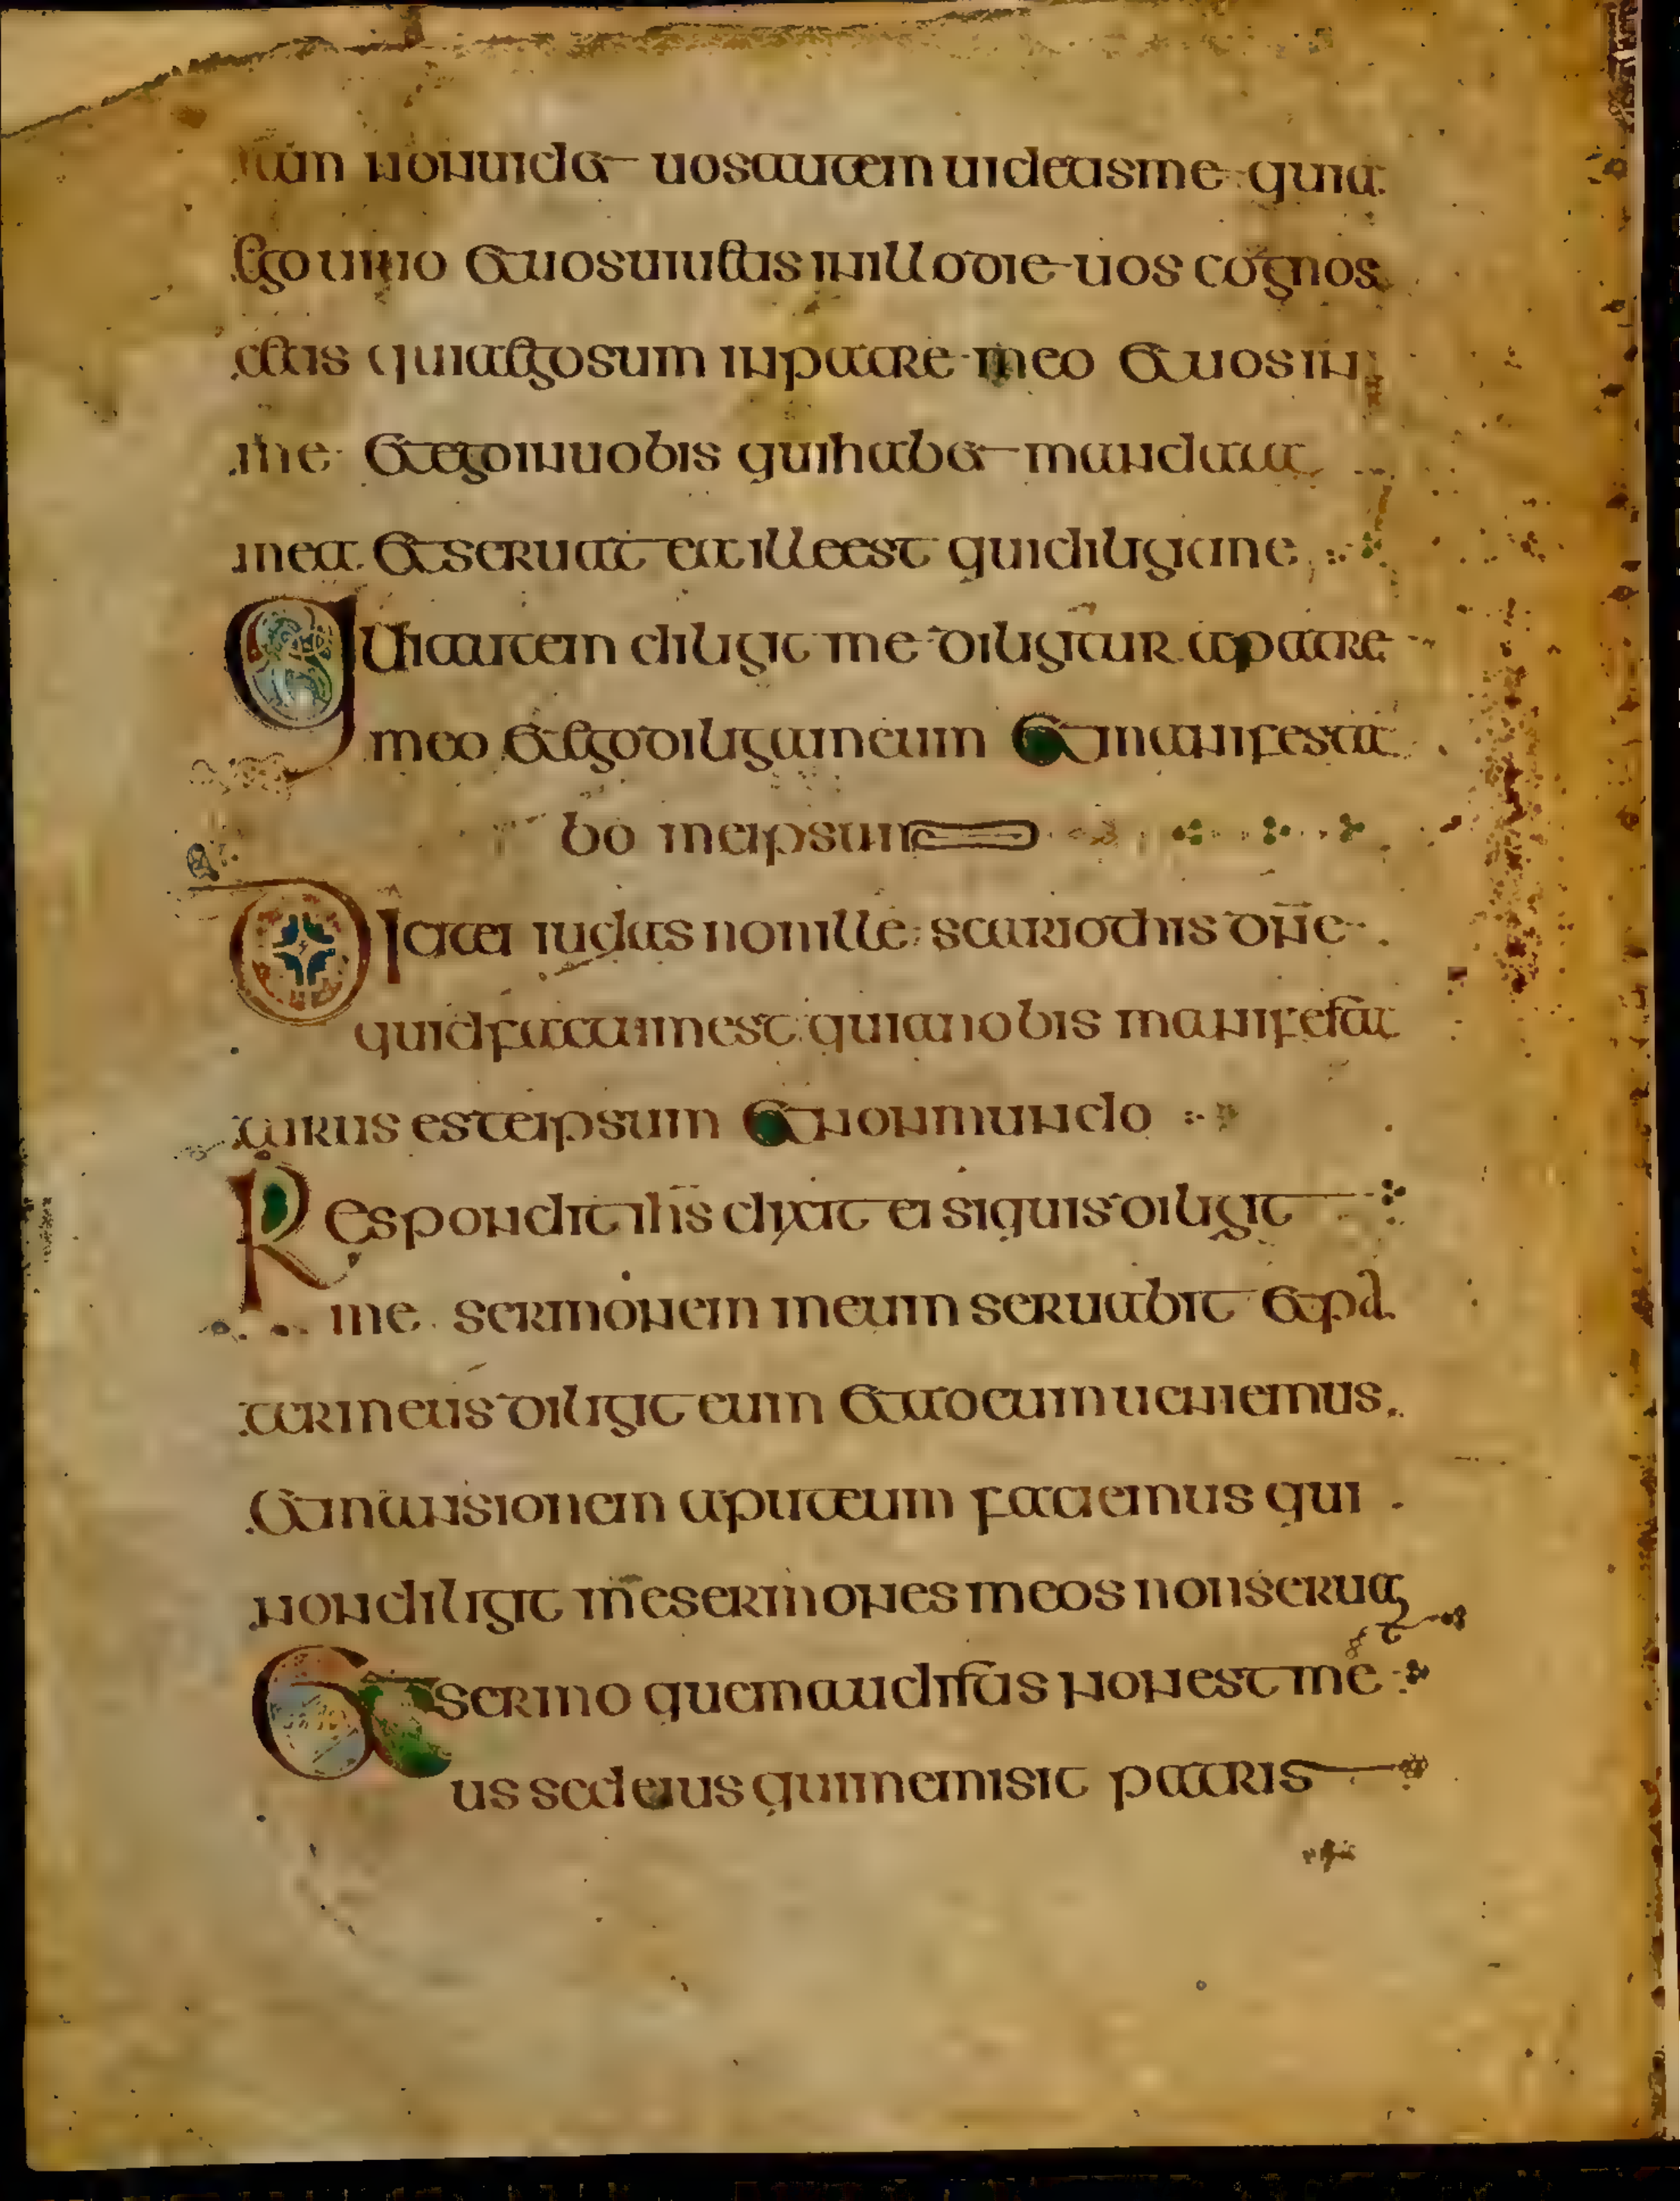 iam non uidet uos autem uidetis me quia
ego uiuo et uos uiuetis in illo die uos cognos
cetis quia ego sum in patre meo et uos in
me et ego in uobis qui habet mandata
mea et seruat ea ille est qui diligit me
Qui autem diligit me diligitur a patre
meo et ego diligam eum et manifesta
bo meipsum
Dicit ei iudas non ille scariothis dn̄e
quid factum est quia nobis manifesta
turus es teipsum et non mundo
Respondit ihs̄ dixit ei si quis diligit
me sermonem meum seruabit et pa
ter meus diligit eum et ad eum ueniemus
et mansionem aput eum faciemus qui
non diligit me sermones meos non seruat
Et sermo quem auditis non est me
us sed eius qui me misit patris